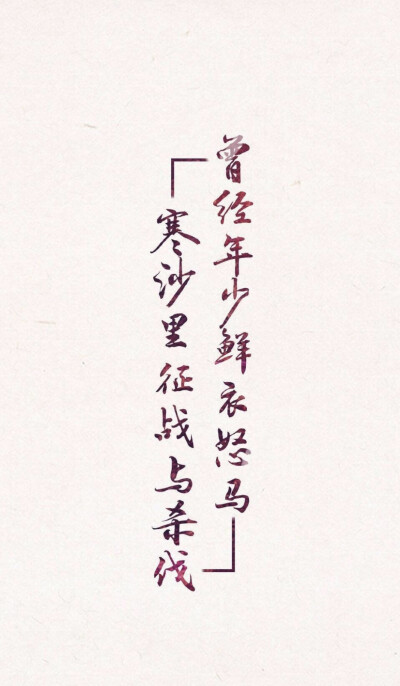 曾经年少鲜衣怒马
寒沙里征战与杀伐